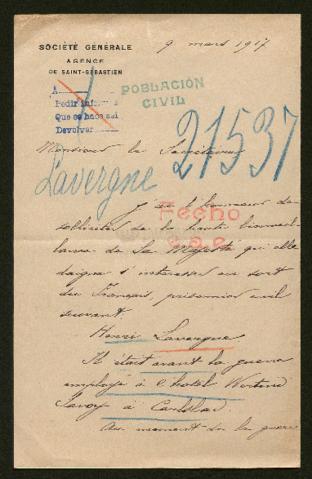 SOCIÉTÉ GÉNÉRALE
AGENCE
DE SAINT-SÉBASTIEN
9 mars 1917
A
Pedir informe
Que se hace así
Devolver
POBLACIÓN
CIVIL
21537
Monsieur le Secrétaire
Lavergne
J'ai l'honneur de
solliciter de la haute bienveil-
lance de Sa Majesté qu'elle
daigne s'intéresser au sort
du Français, prisonnier civil
suivant.
Fecho
Henri Lavergne
Il était avant la guerre
employé à l'hotel
Savoy à Carlsbad.
Au moment de la guerre